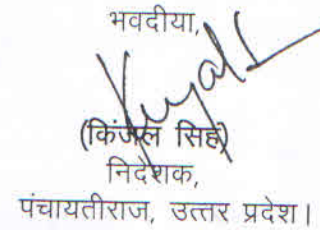 भवदीया,
(किंजल सिंह)
निदेशक,
पंचायतीराज, उत्तर प्रदेश।